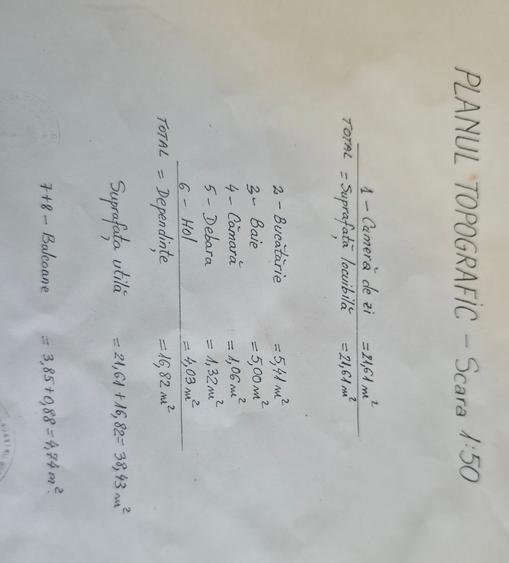 PLANUL TOPOGRAFIC - Scara 1:50
1 - Cameră de zi = 21,61 m²
TOTAL = Suprafață locuibilă = 21,61 m²
2 - Bucătărie = 5,41 m²
3 - Baie = 5,00 m²
4 - Cămară = 1,06 m²
5 - Debara = 1,32 m²
6 - Hol = 4,03 m²
TOTAL = Dependințe = 16,82 m²
Suprafața utilă = 21,61 + 16,82 = 38,43 m²
7+8 - Balcoane = 3,85 + 0,88 = 4,74 m²